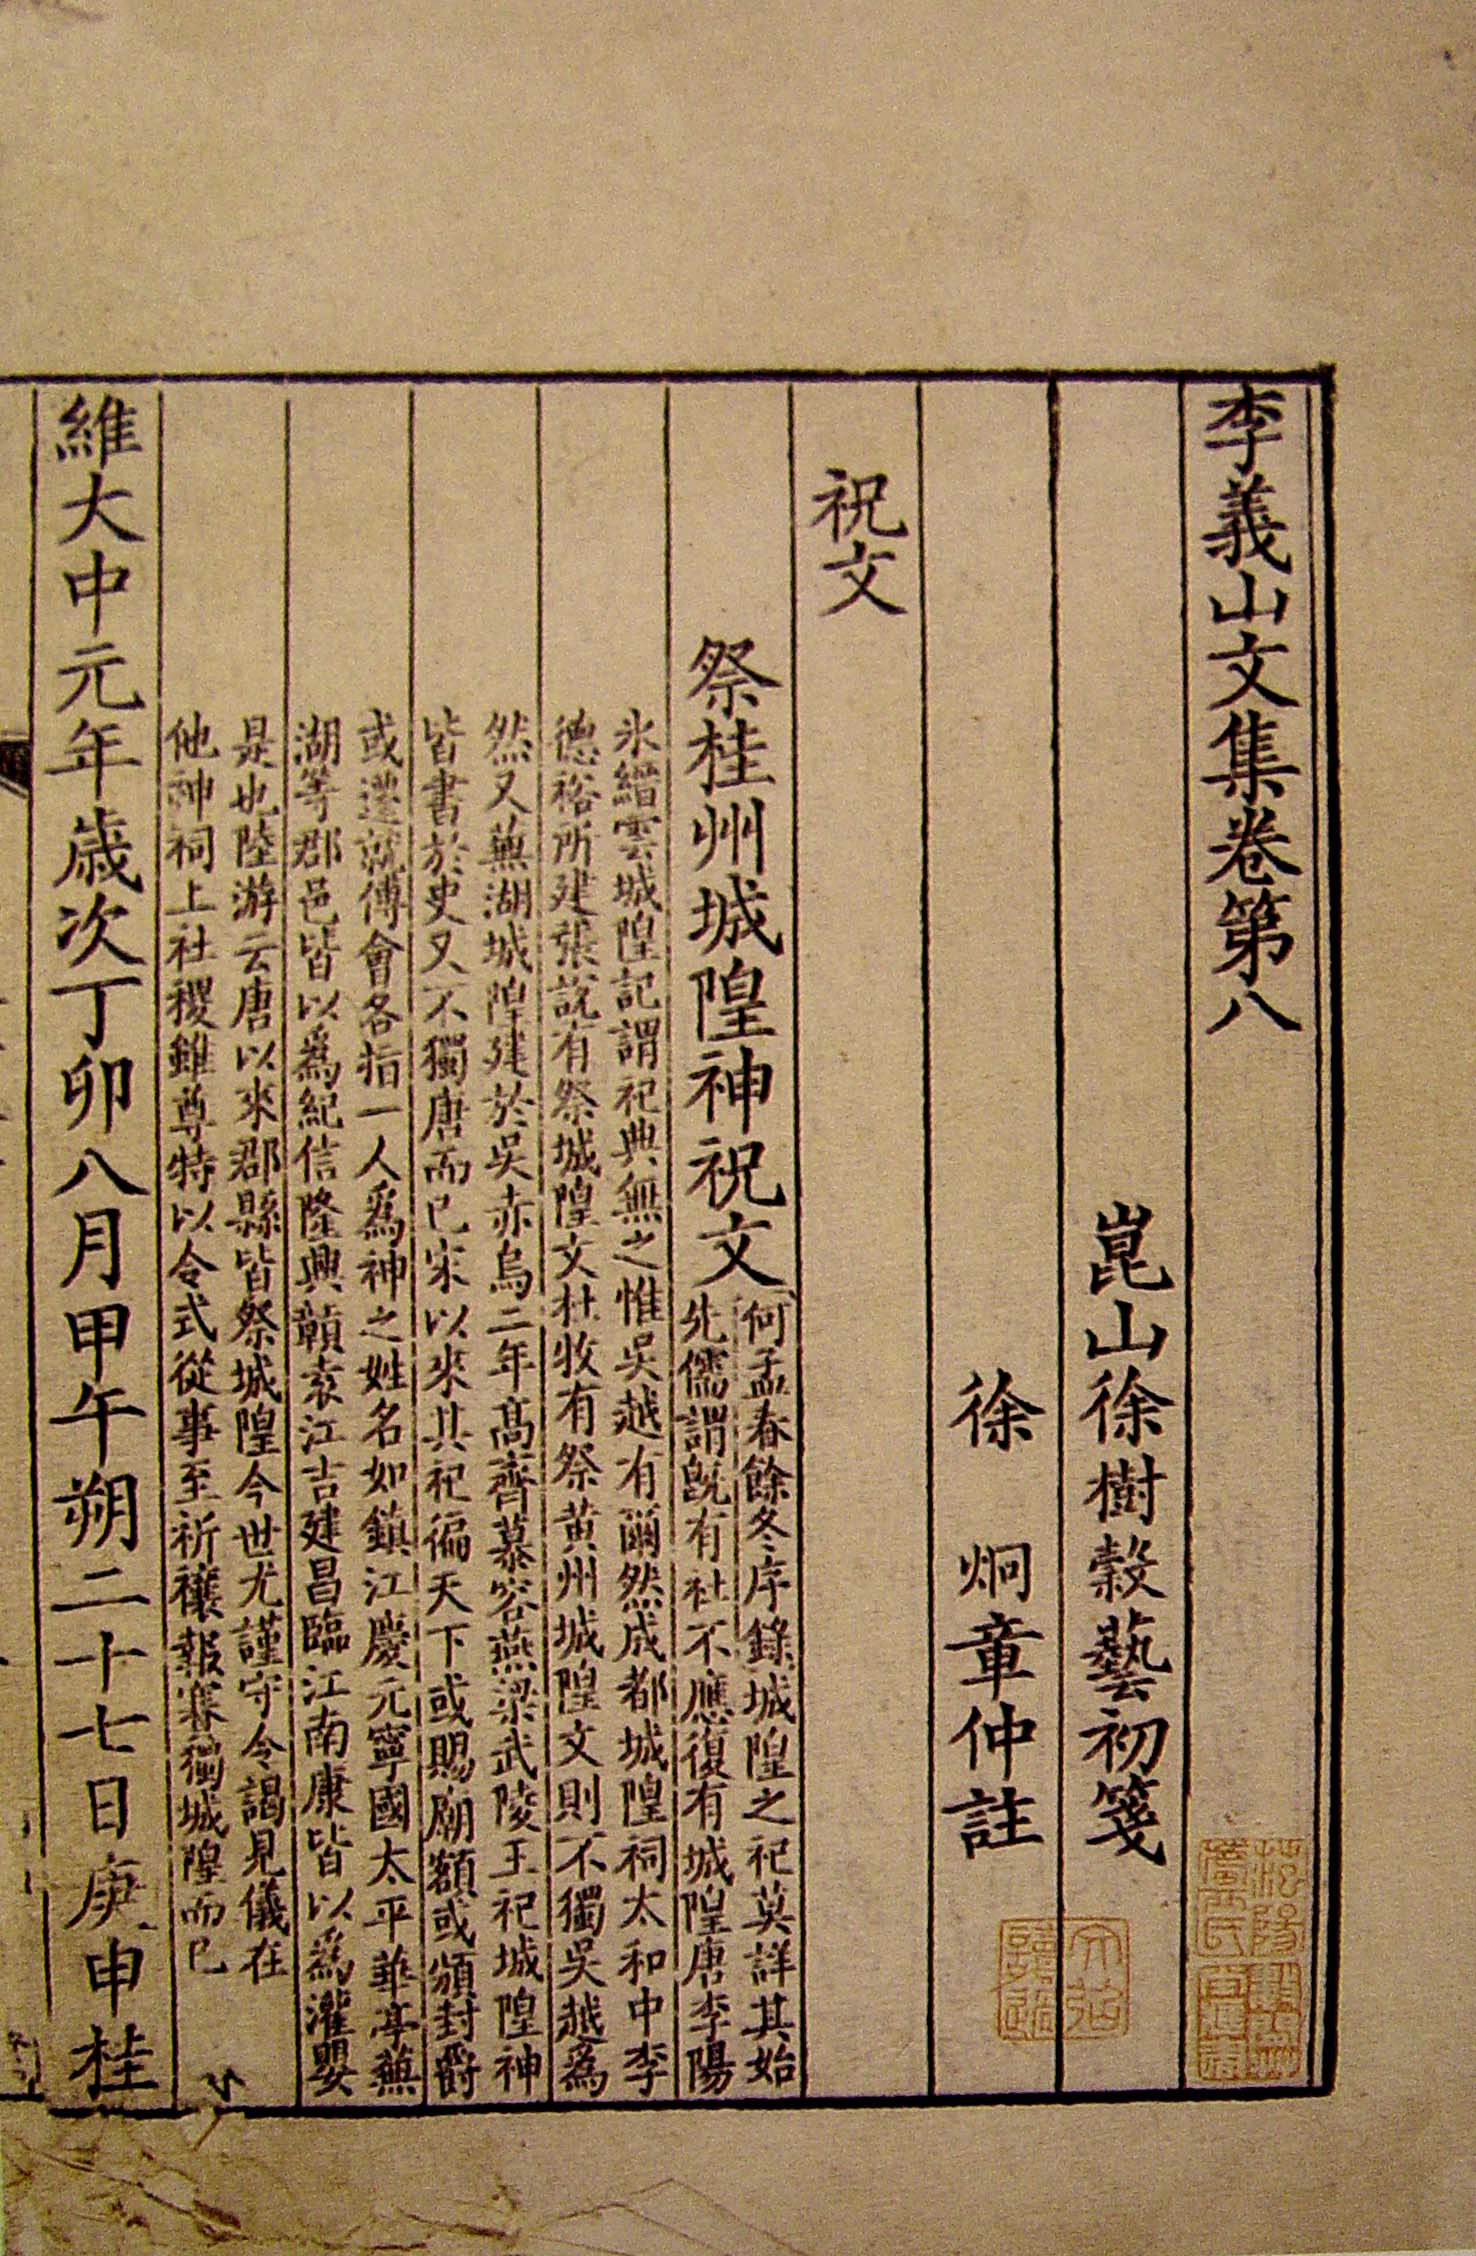 李義山文集卷第八
崑山徐樹穀藝初箋
徐炯章仲註
祝文
祭桂州城隍神祝文
何孟春餘冬序錄城隍之祀莫詳其始
先儒謂旣有社不應復有城隍唐李陽
氷縉雲城隍記謂祀典無之惟吳越有爾然成都城隍祠太和中李
德裕所建張說有祭城隍文杜牧有祭黄州城隍文則不獨吳越爲
然又蕪湖城隍建於吳赤烏二年髙齊慕容燕梁武陵王祀城隍神
皆書於史又不獨唐而已宋以來其祀徧天下或賜廟額或頒封爵
或遷就傅會各指一人爲神之姓名如鎮江慶元寧國太平華亭蕪
湖等郡邑皆以爲紀信隆興贛袁江吉建昌臨江南康皆以爲灌嬰
是也陸游云唐以來郡縣皆祭城隍今世尤謹守令謁見儀在
他神祠上社稷雖尊特以令式從事至祈禳報賽獨城隍而已
維大中元年歳次丁卯八月甲午朔二十七日庚申桂